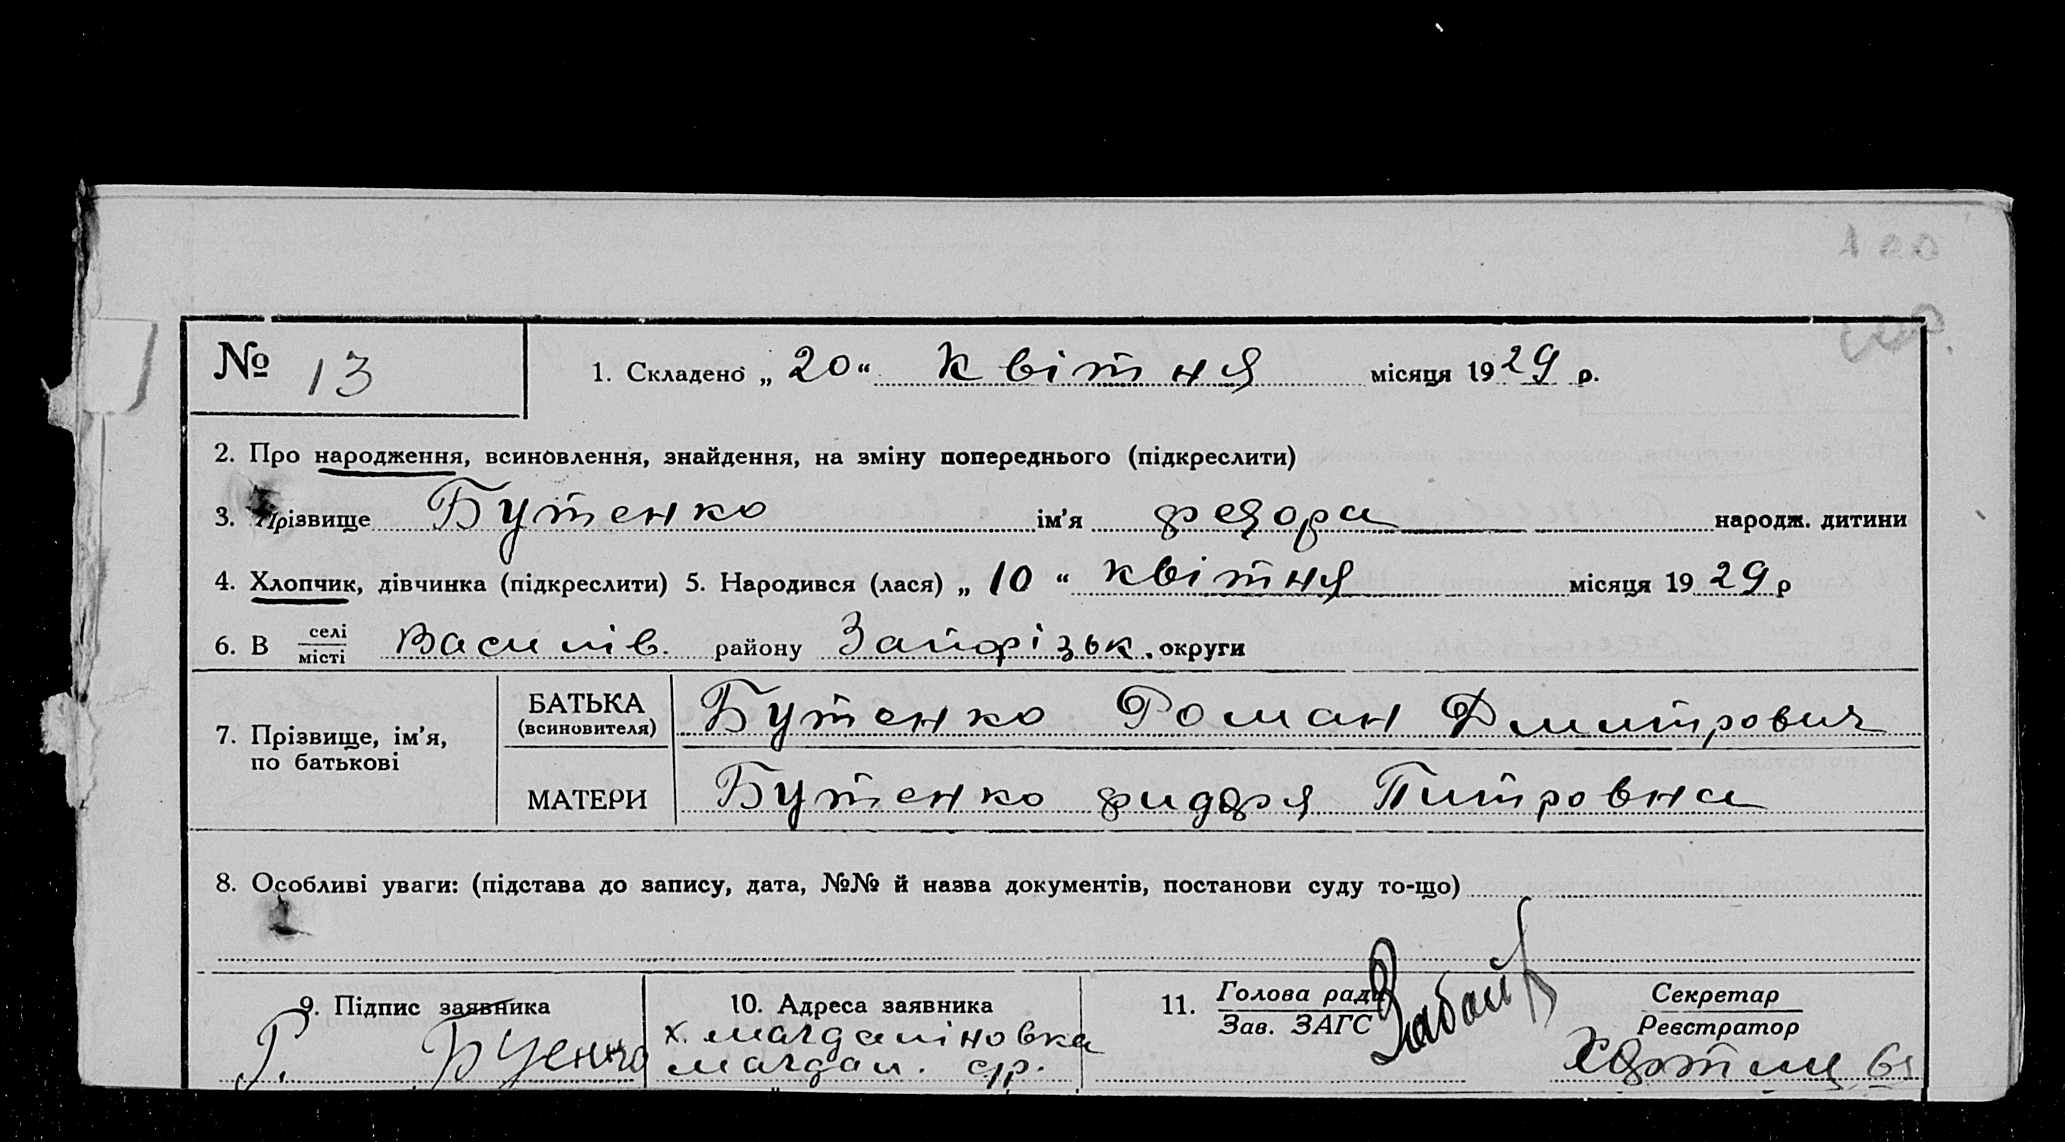 № 13
1. Складено „ 20 “ квітня місяця 1929 р.
2. Про народження, всиновлення, знайдення, на зміну попереднього (підкреслити)
3. Прізвище Бутенко ім'я федора народж. дитини
4. Хлопчик, дівчинка (підкреслити) 5. Народився (лася) „ 10 “ квітня місяця 1929 р
6. В селі місті Василів. району Запорізьк. округи
7. Прізвище, ім'я, по батькові
БАТЬКА (всиновителя) Бутенко Роман Дмитрович
МАТЕРИ Бутенко фидоря Питровна
8. Особливі уваги: (підстава до запису, дата, №№ й назва документів, постанови суду то-що)
9. Підпис заявника
Р.
10. Адреса заявника
х. магдаліновка
магдал. с/р.
11. Голова ради
Зав. ЗАГС
Секретар
Реєстратор